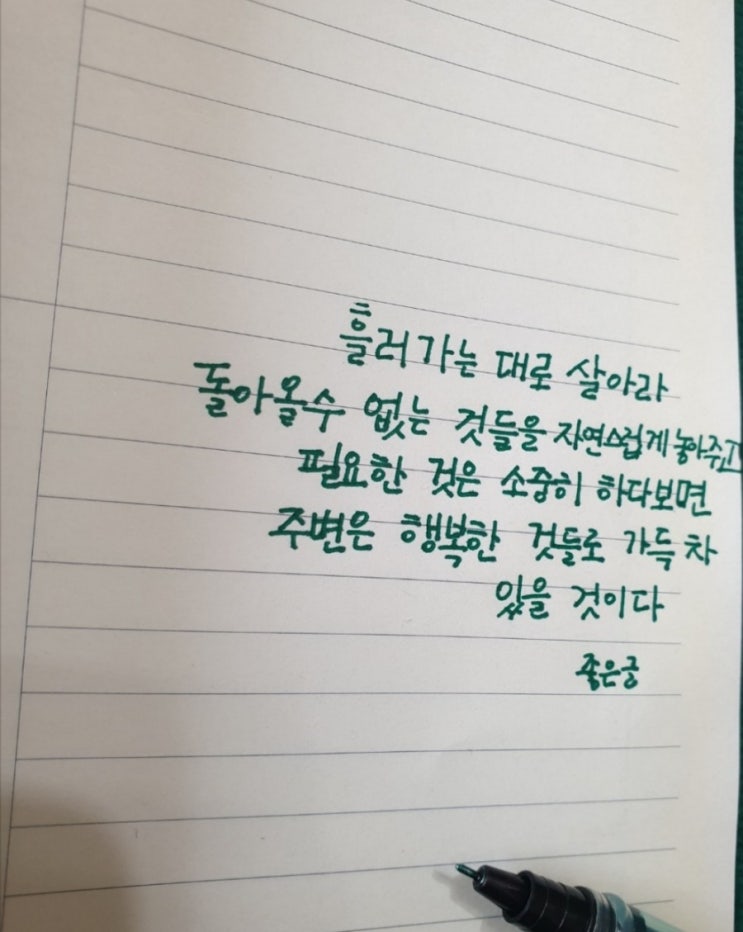 흘러가는 대로 살아라
돌아올수 없는 것들을 자연스럽게 놓아주고
필요한 것은 소중히 하다보면
주변은 행복한 것들로 가득 차
있을 것이다
좋은글